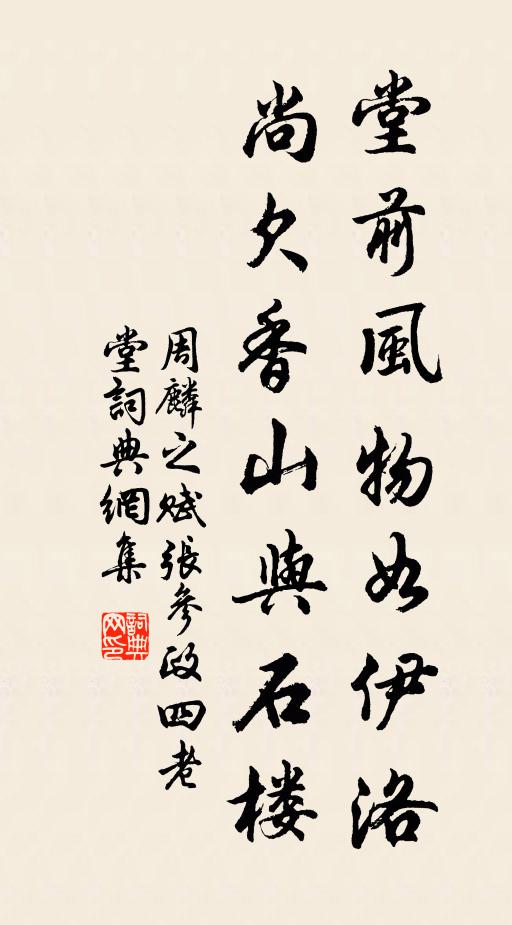 堂前風物如伊洛
尚欠香山與石楼
周麟之賦張參政四老
堂詞典網集
詞典
网印